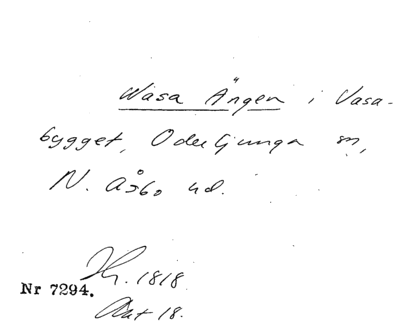 Wasa Ängen i Vasa-
bygget, Oderljunga sn,
N. Åsbo hd.
Nr 7294. 1818
Akt 18.